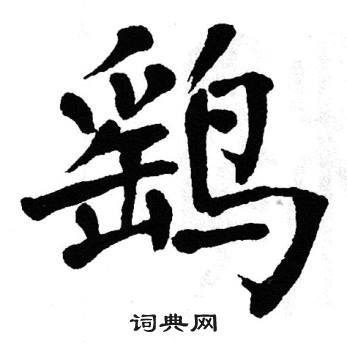 鹞
词典网